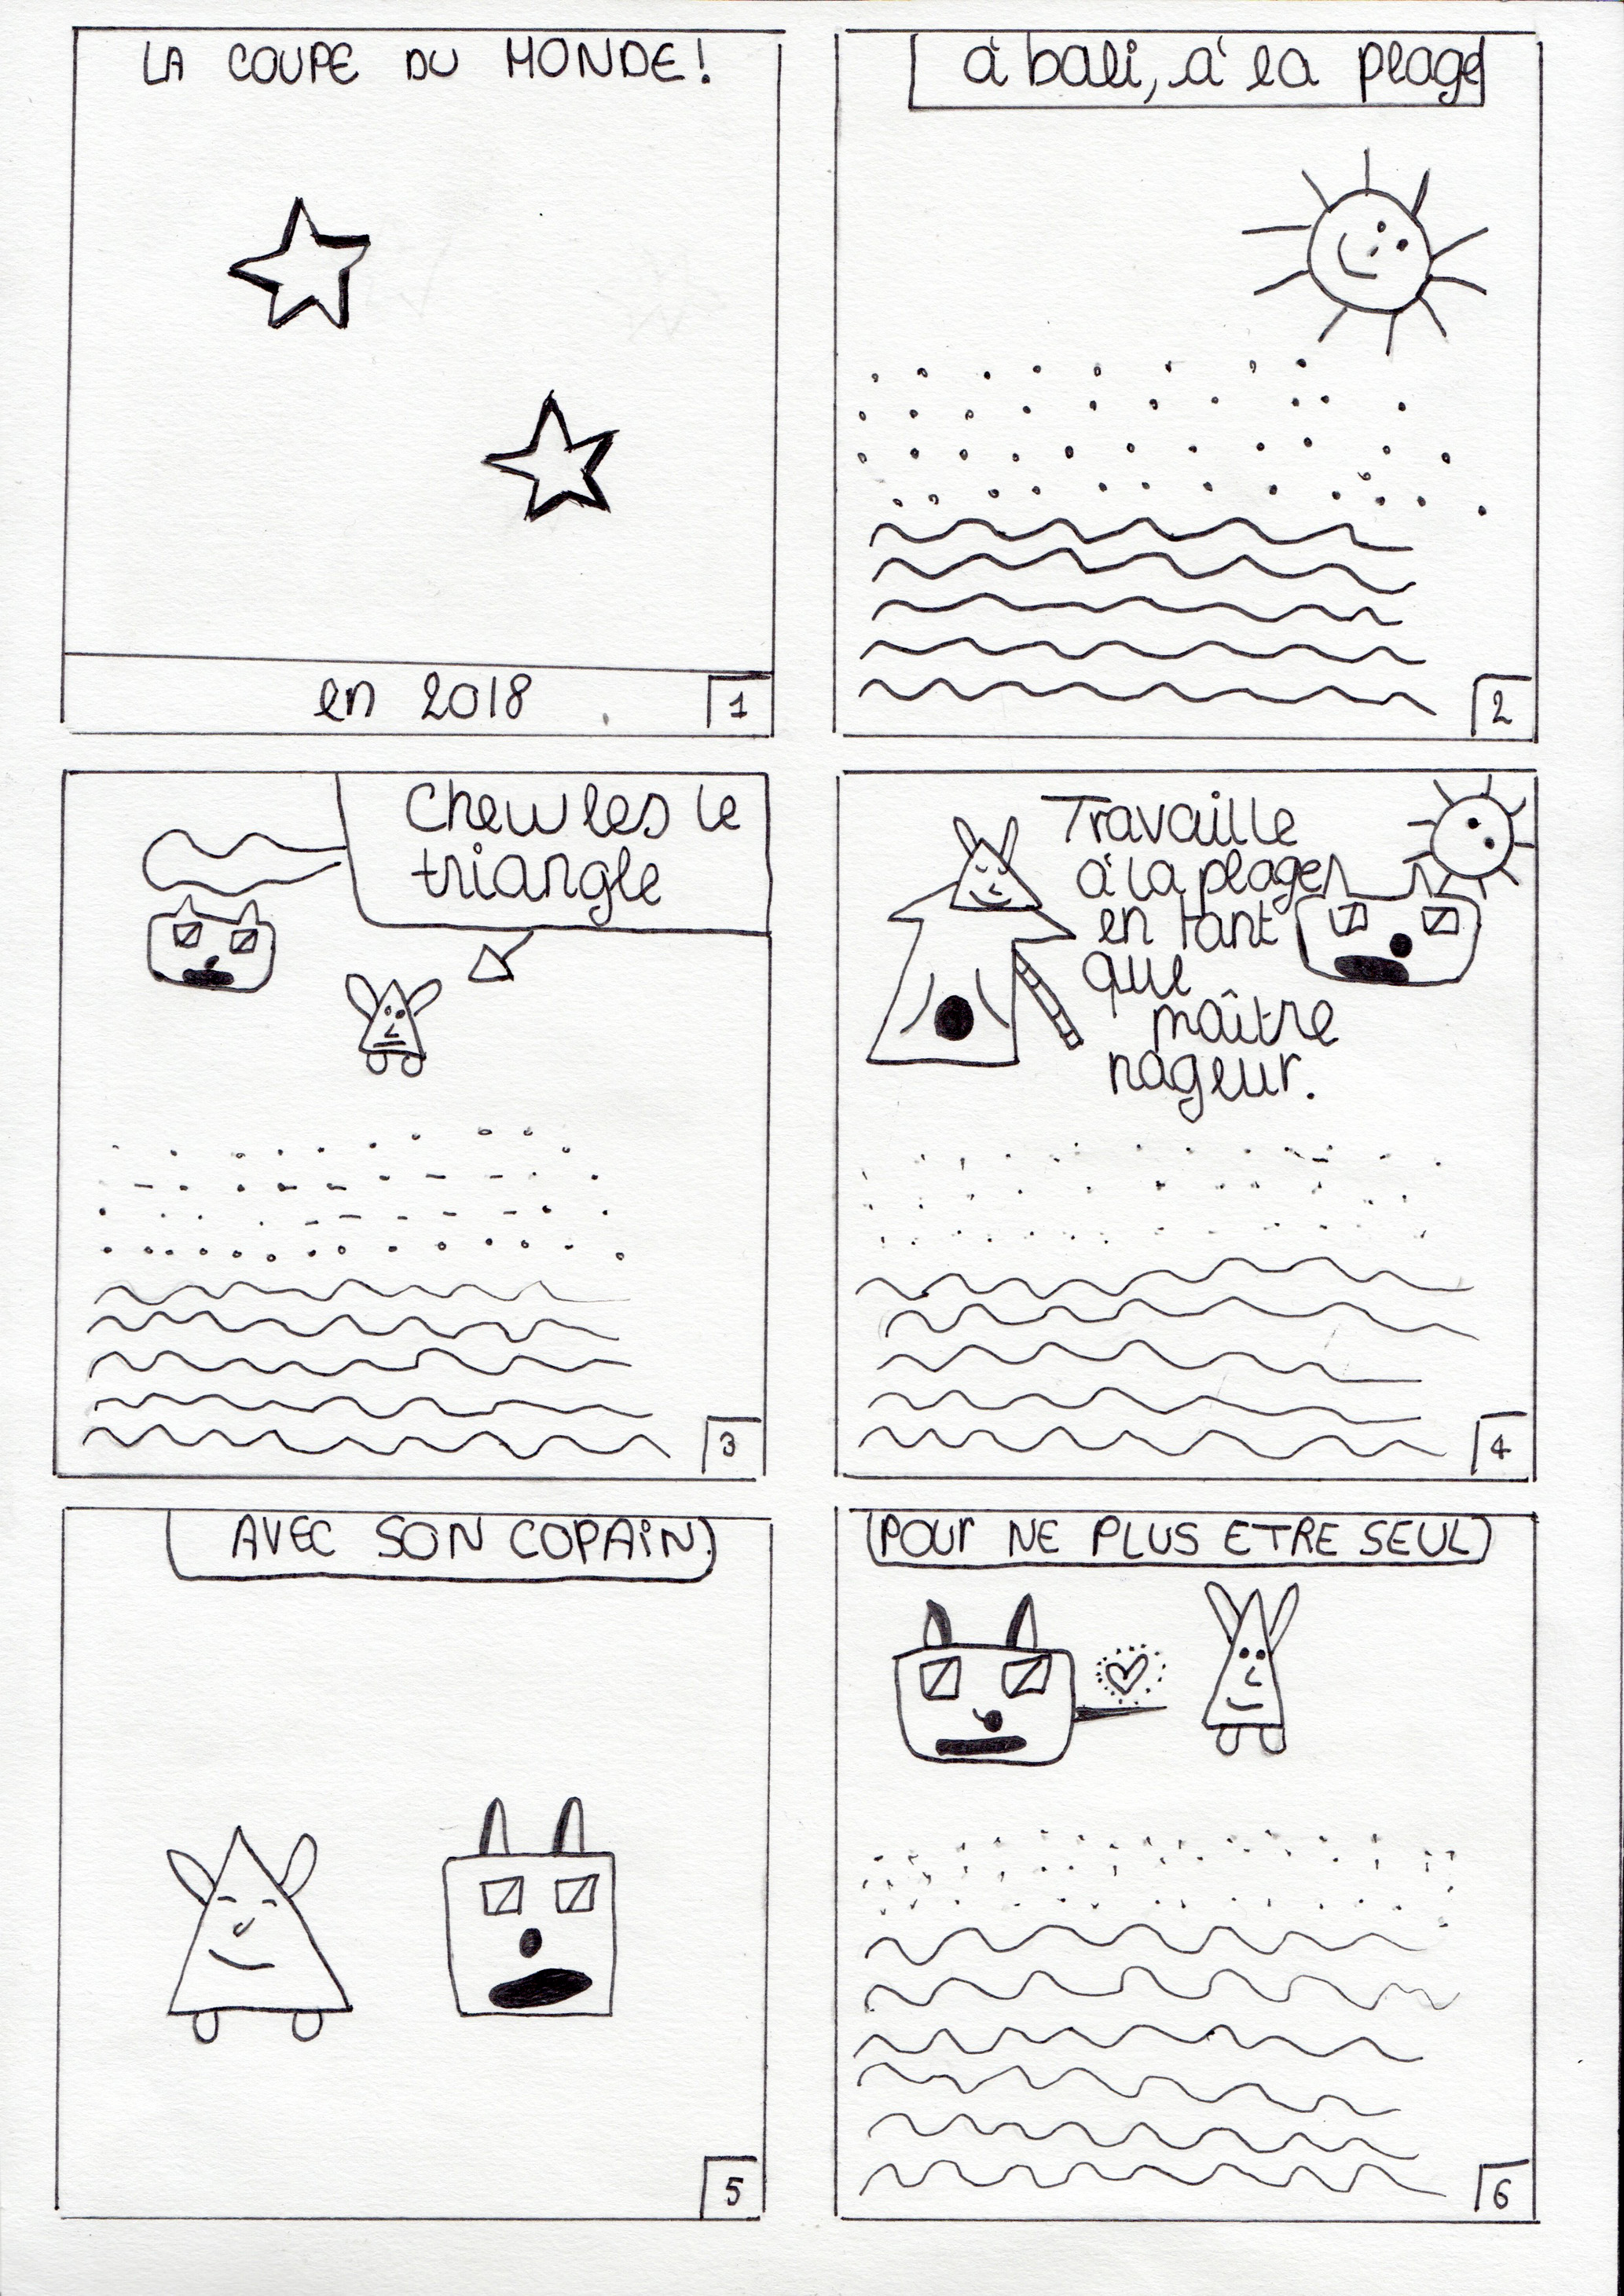 LA COUPE DU MONDE!
en 2018
1
à bali, à la plage
2
Chewles le
triangle
3
Travaille
à la plage
en tant
que
maître
nageur.
4
AVEC SON COPAIN
5
(POUr NE PLUS ETRE SEUL)
6